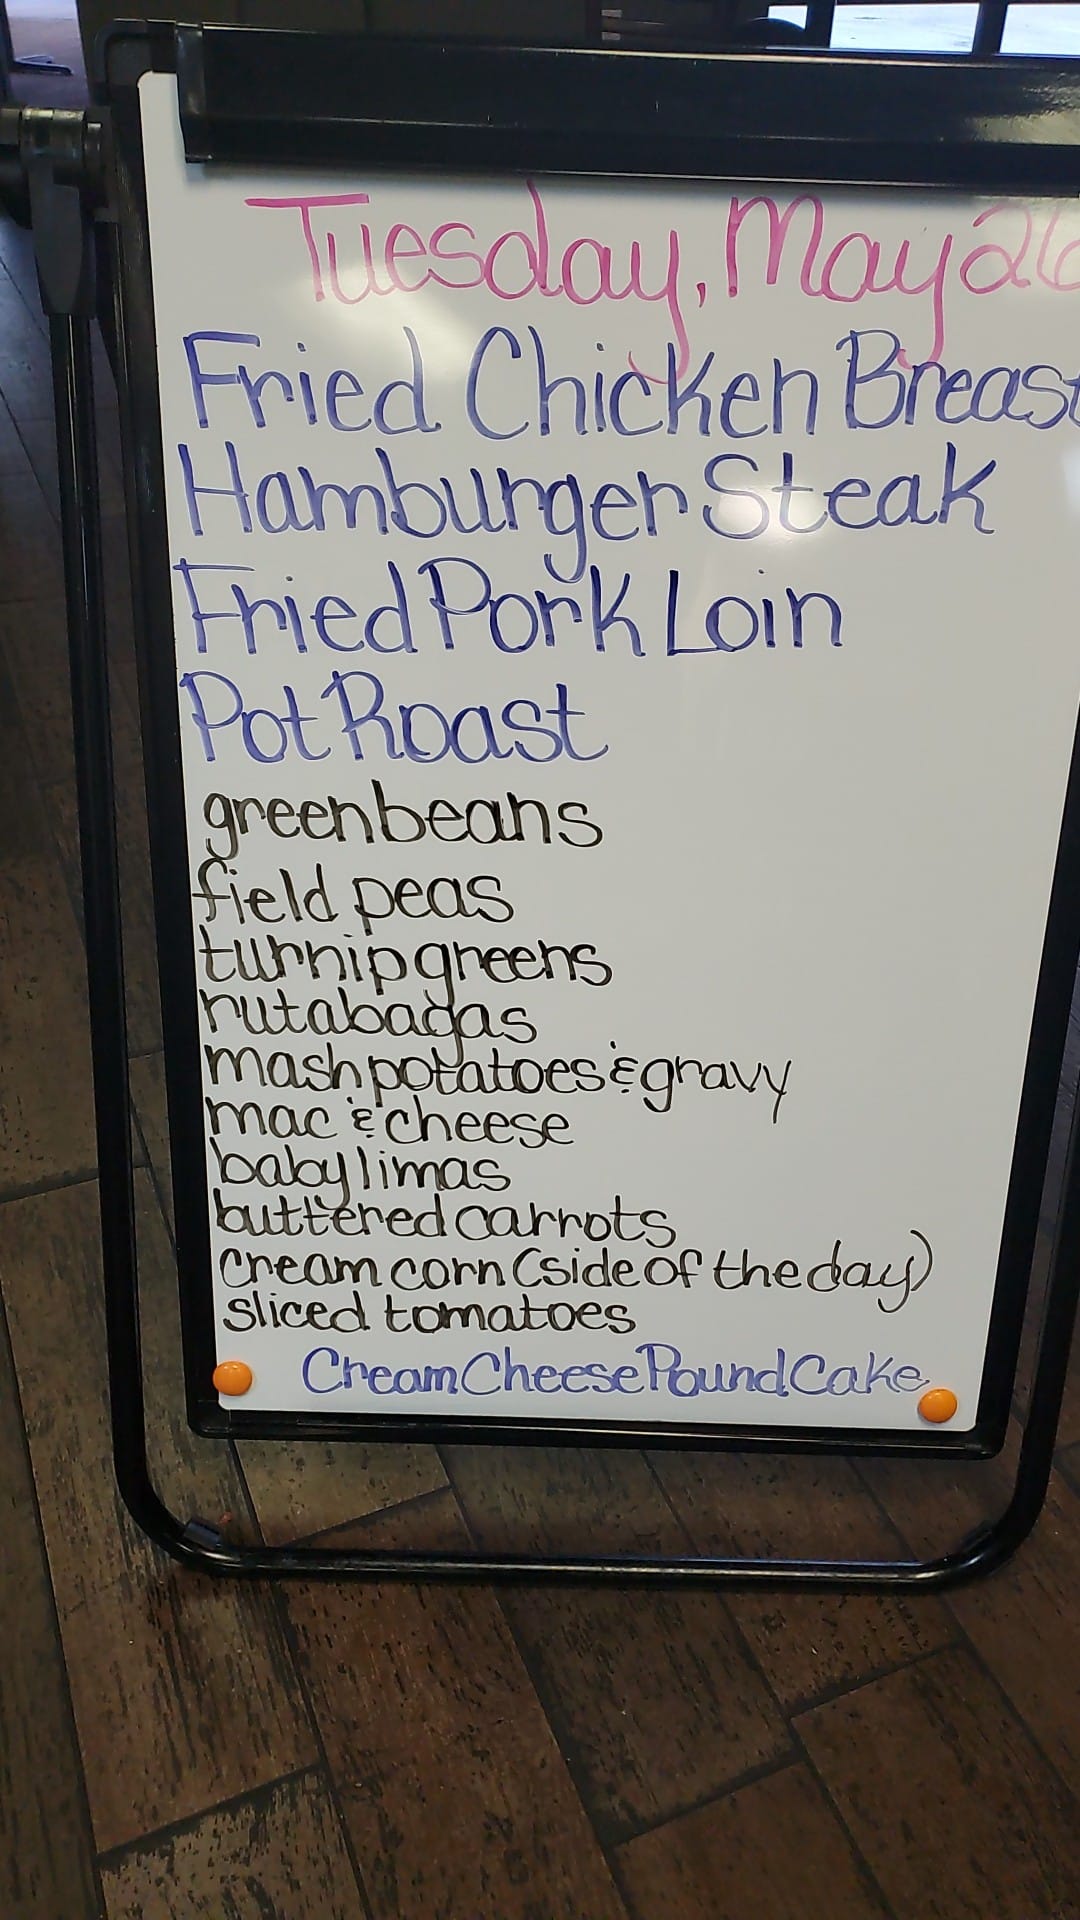 Tuesday, May 26
Fried Chicken Breast
Hamburger Steak
Fried Pork Loin
Pot Roast
green beans
field peas
turnip greens
rutabagas
mash potatoes & gravy
mac & cheese
baby limas
buttered carrots
cream corn (side of the day)
sliced tomatoes
Cream Cheese Pound Cake